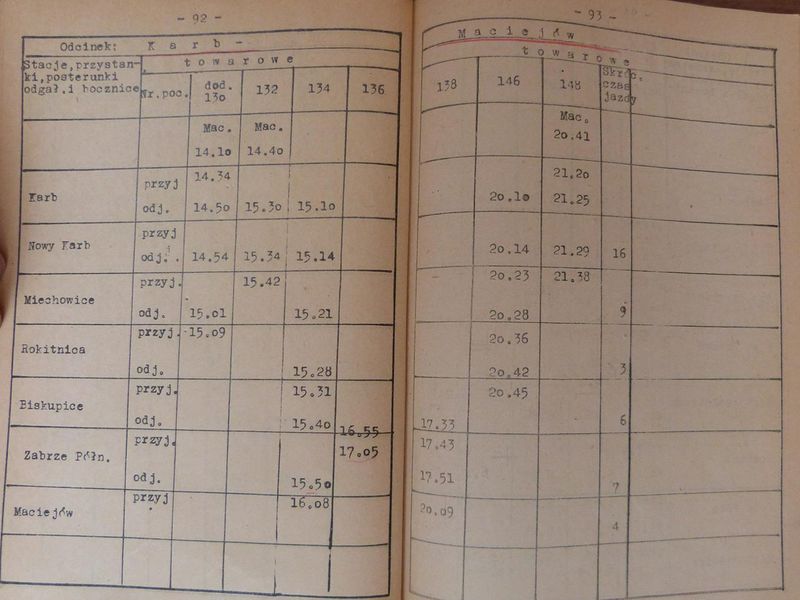 - 92 -
Odcinek: K a r b -
Stacje, przystan- t o w a r o w e
ki, posterunki
odgał. i bocznice Nr. poc. dod. 130 132 134 136
Mac. Mac.
14.10 14.40
14.34
Karb przyj
odj. 14.50 15.30 15.10
Nowy Karb przyj
odj. 14.54 15.34 15.14
przyj. 15.42
Miechowice
odj. 15.01 15.21
przyj. 15.09
Rokitnica
odj. 15.28
przyj. 15.31
Biskupice
odj. 15.40 16.55
przyj. 17.05
Zabrze Półn.
odj. 15.50
przyj 16.08
Maciejów
- 93 -
M a c i e j ó w
t o w a r o w e
138 146 148 Skróc.
czas
jazdy
Mac.
20.41
21.20
20.10 21.25
20.14 21.29 16
20.23 21.38
20.28 9
20.36
20.42 3
20.45
17.33 6
17.43
17.51
7
20.09
4